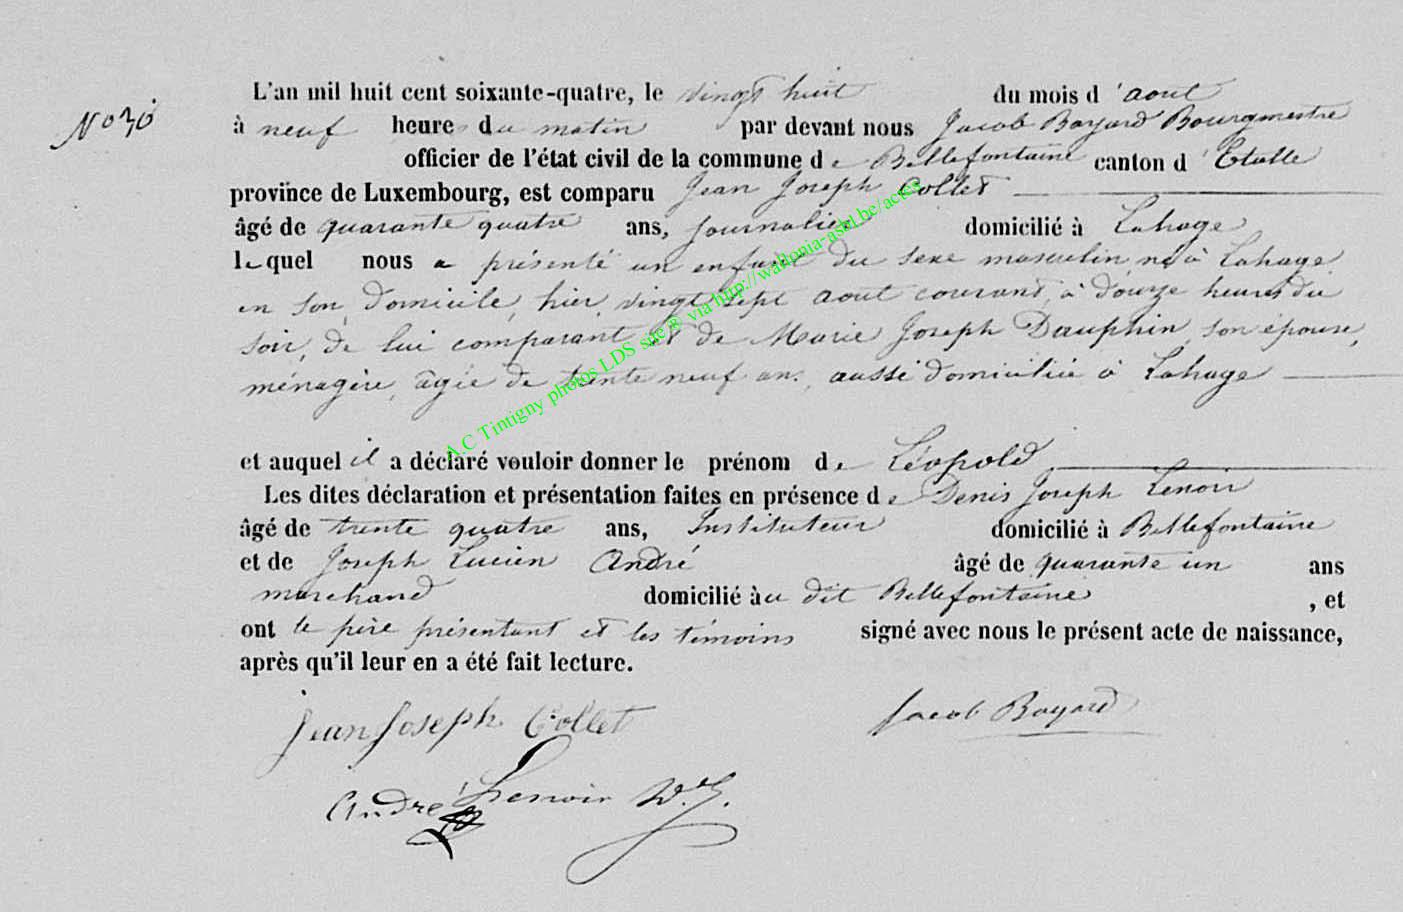 No 30
L'an mil huit cent soixante-quatre, le vingt huit du mois d'aout
à neuf heures du matin par devant nous Jacob Bayard Bourgmestre
officier de l'état civil de la commune de Bellefontaine canton d'Etalle
province de Luxembourg, est comparu Jean Joseph Collet
âgé de quarante quatre ans, journalier domicilié à Lahage
lequel nous a présenté un enfant du sexe masculin né à Lahage
en son domicile, hier, vingt sept aout courant, à douze heures du
soir, de lui comparant et de Marie Joseph Dauphin, son épouse,
ménagère, âgée de trente neuf ans, aussi domiciliée à Lahage
et auquel il a déclaré vouloir donner le prénom de Léopold
Les dites déclaration et présentation faites en présence de Denis Joseph Lenoir
âgé de trente quatre ans, Instituteur domicilié à Bellefontaine
et de Joseph Lucien André âgé de quarante un ans
marchand domicilié au dit Bellefontaine, et
ont le père présentant et les témoins signé avec nous le présent acte de naissance,
après qu'il leur en a été fait lecture.
Jean Joseph Collet Jacob Bayard
André Lenoir D.J.
A.C Tintigny photos LDS sde ® via http://wallonia-asbl.be/actes